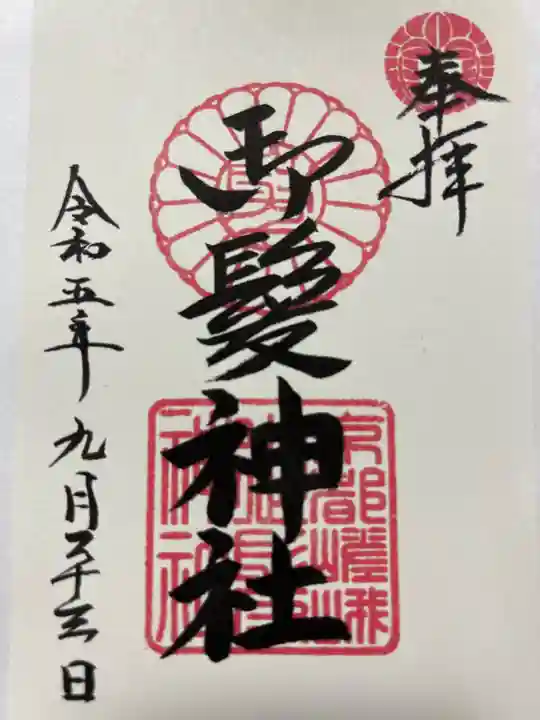 奉拝
御髪神社
京都嵯峨
令和五年九月二十三日